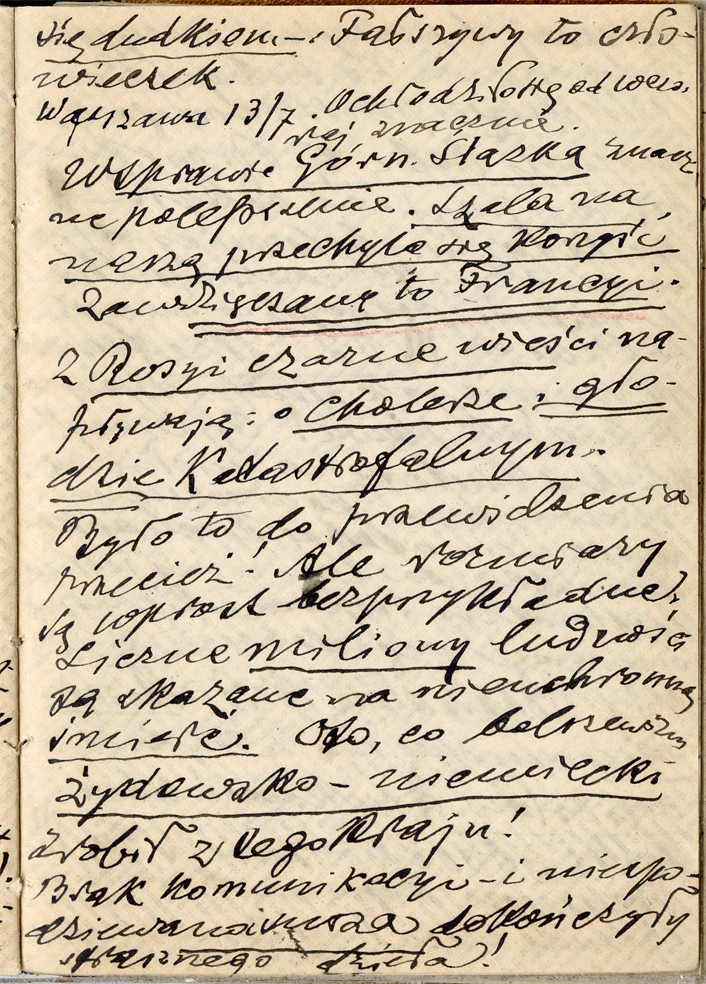 się dudkiem – : Fałszywy to czło-
wieczek.
Warszawa 13/7. Ochłodziło się od wczo-
raj znacznie.
W sprawie Górn. Śląska znacz-
ne polepszenie. Szala na
naszą przechyla się korzyść
Zawdzięczamy to Francyi.
Z Rosyi czarne wieści na-
pływają: o cholerze i gło-
dzie Katastrofalnym.
Było to do przewidzenia
przecież! Ale rozmiary
są wprost bezprzykładne,
Liczne miliony ludności
są skazane na nieuchronną
śmierć. Oto, co bolszewizm
Żydowsko – niemiecki
zrobił z tego kraju!
Brak Komunikacyi – i niespo-
dziewana dokończyły
strasznego dzieła!